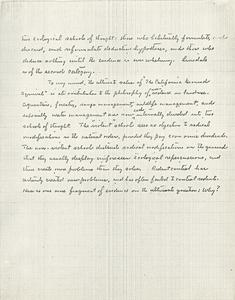 two ecological schools of thought: those who habitually formulate, and
discard, and reformulate deductive hypotheses, and those who
deduce nothing until the evidence is overwhelming. Linsdale
is of the second category.
To my mind, the ultimate value of "The California Ground
Squirrel" is its contribution to the philosophy of violence in land-use.
Agriculture, forestry, range management, wildlife management, and
national water management are now internally divided into two
schools of thought. The violent schools see no objection to radical
modifications in the natural order, provided they pay economic dividends.
The non-violent schools distrust radical modifications on the ground
that they usually display unforeseen ecological repercussions, and
thus create more problems than they solve. Rodent control has
certainly created new problems, and has often failed to control rodents.
Here is one more fragment of evidence on the ultimate question: Why?